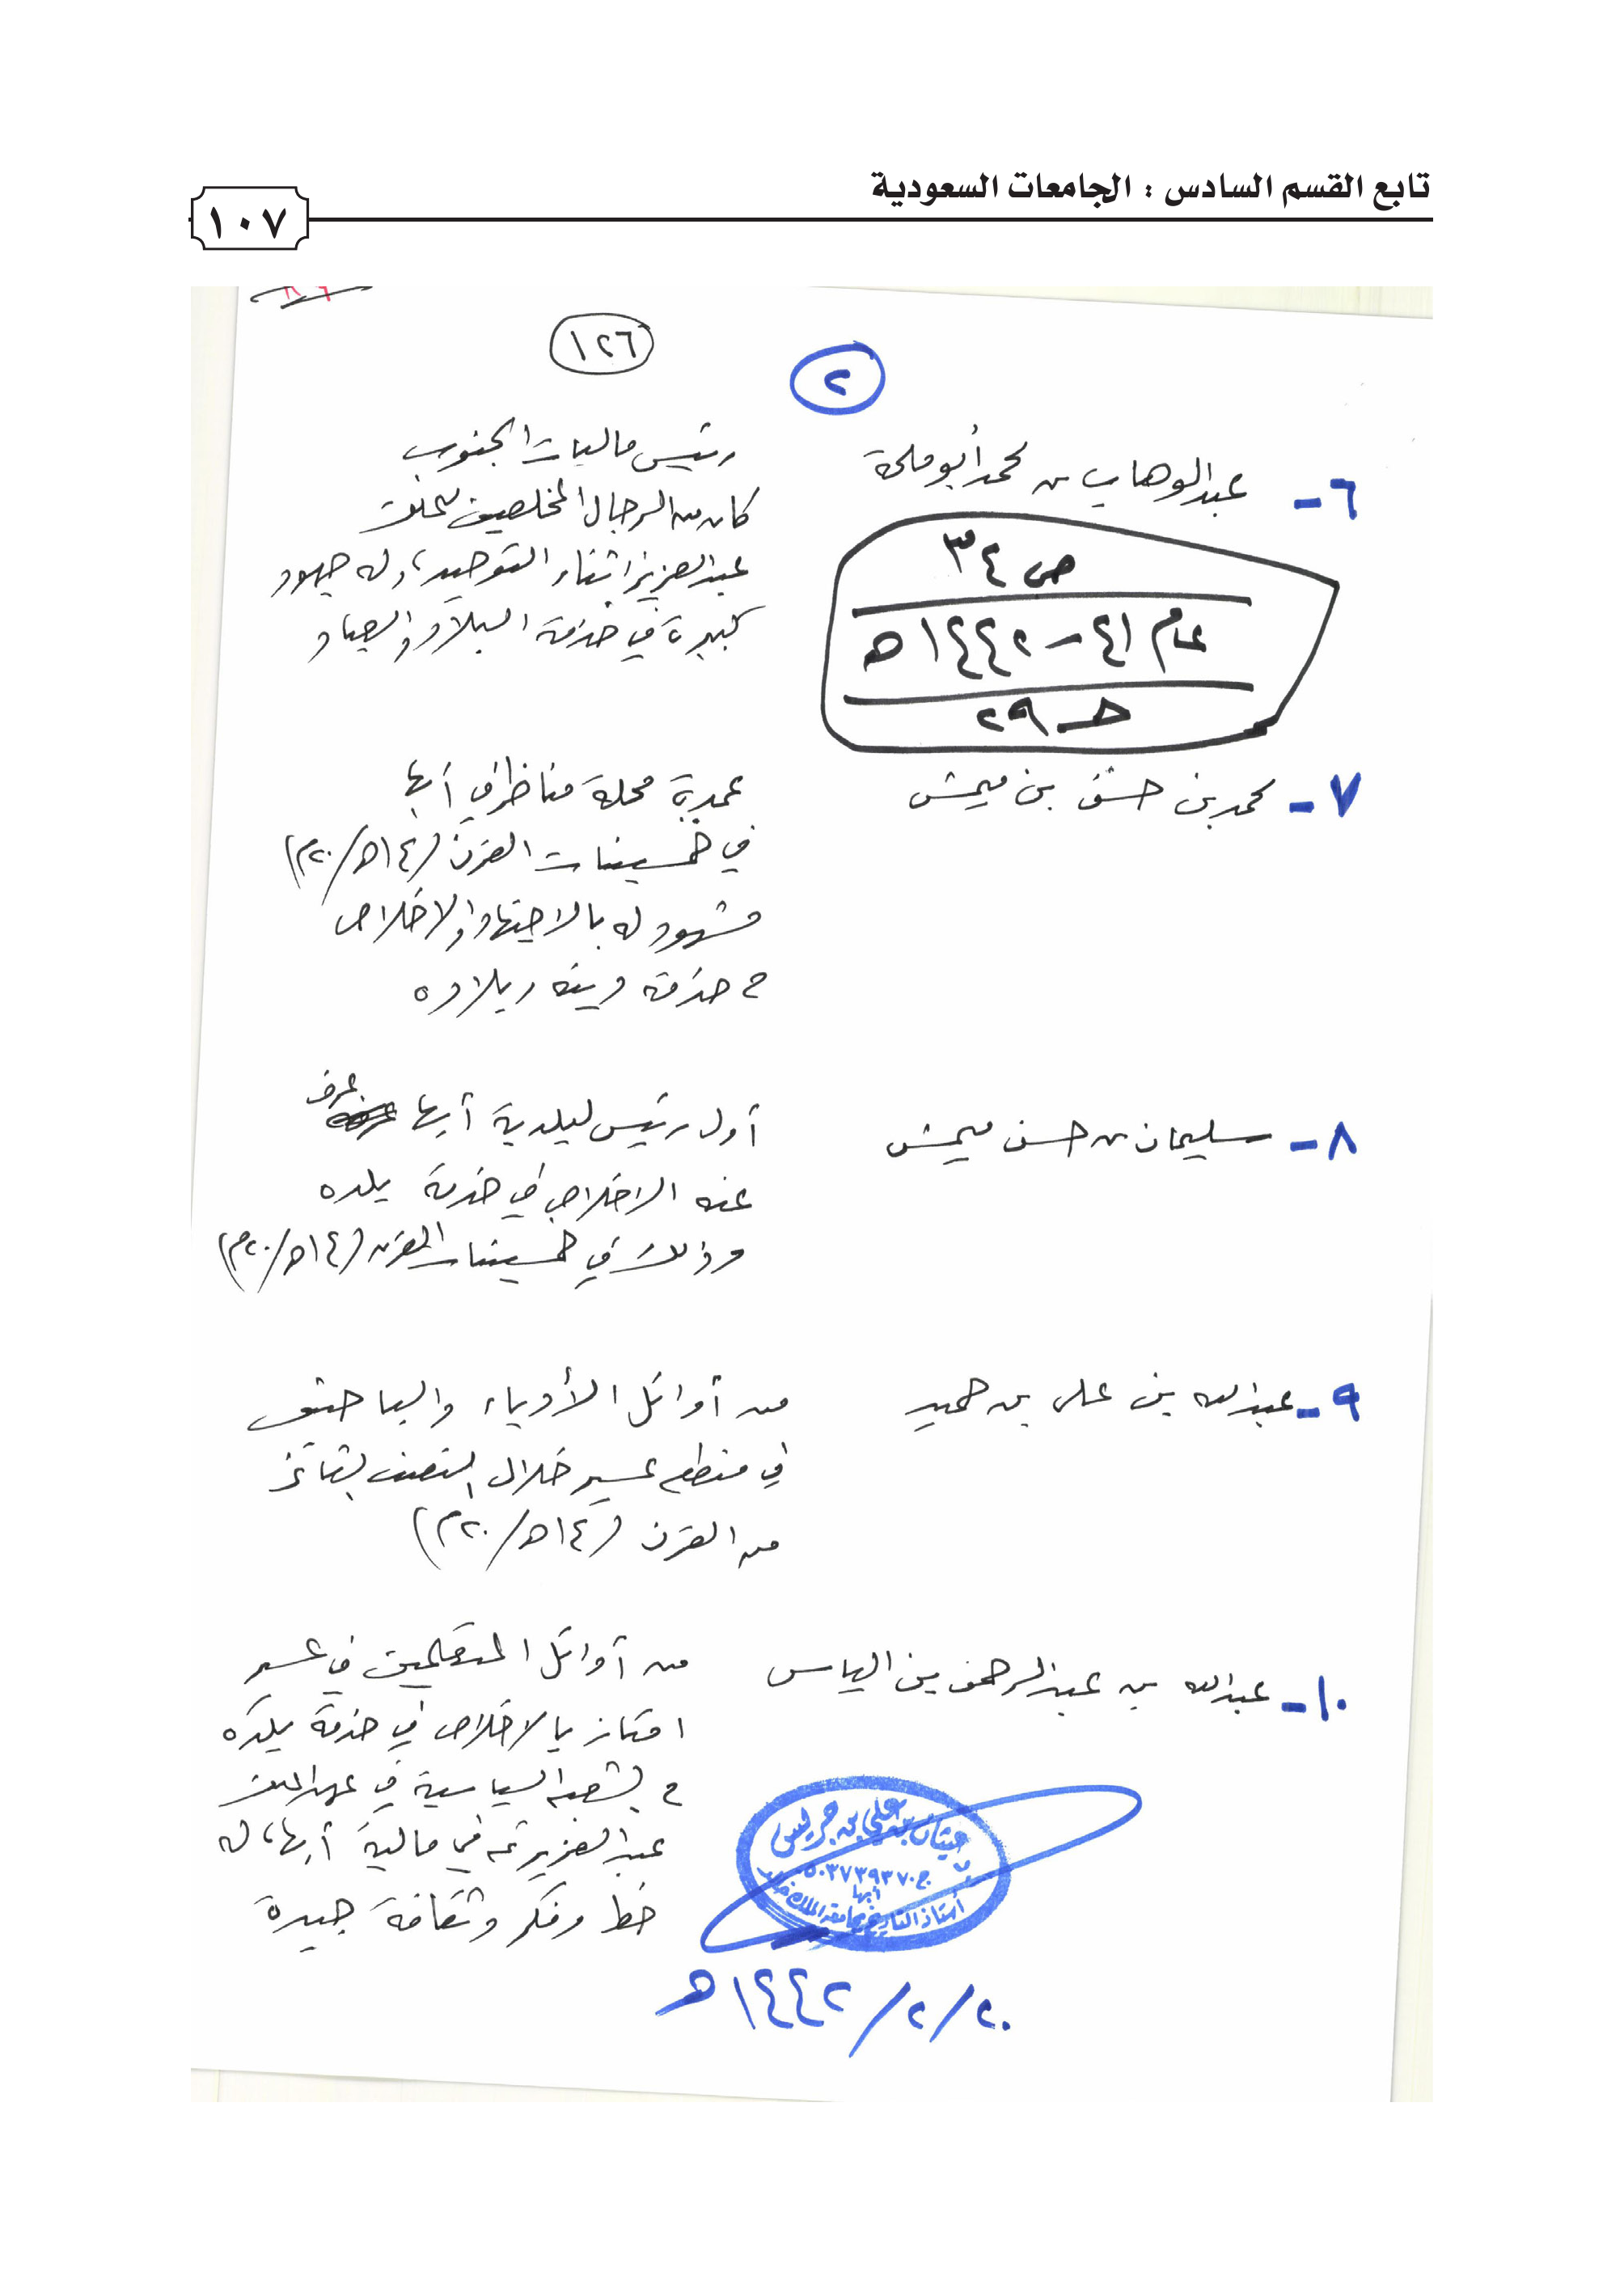 تابع القسم السادس : الجامعات السعودية
١٠٧
١٢٦
٢
٦- عبدالوهاب بن محمد أبو ملحة
رئيس ماليات الجنوب
كان من الرجال المخلصين للملك
عبدالعزيز أثناء التوحيد، وله جهود
كبيرة في خدمة البلاد والعباد
ص ٣٤
عام ٤١ – ١٤٤٢هـ
حـ ٢٩
٧- محمد بن حسن بن ميمش
عمدة محلة مناظر في أبها
في خمسينات القرن (١٤هـ/٢٠م)
مشهود له بالاجتهاد والاخلاص
في خدمة دينه وبلاده
٨- سليمان بن حسن ميمش
أول رئيس لبلدية أبها عرف
عنه الاخلاص في خدمة بلده
وذلك في خمسينات القرن (١٤هـ/٢٠م)
٩- عبدالله بن علي بن حميد
من أوائل الأدباء والباحثين
في منطقة عسير خلال النصف الثاني
من القرن (١٤هـ/٢٠م)
١٠- عبدالله بن عبدالرحمن بن الياس
من أوائل المتعلمين في عسير
امتاز بالاخلاص في خدمة بلده
في الشعبة السياسية في عهد الملك
عبدالعزيز ثم في مالية أبها، له
خط وفكر وثقافة جيدة
غيثان بن علي بن جريس
ج.٠٥٠٣٧٣٩٣٧
أبها
أستاذ التاريخ بجامعة الملك خالد
٢٠/٢/١٤٤٢هـ